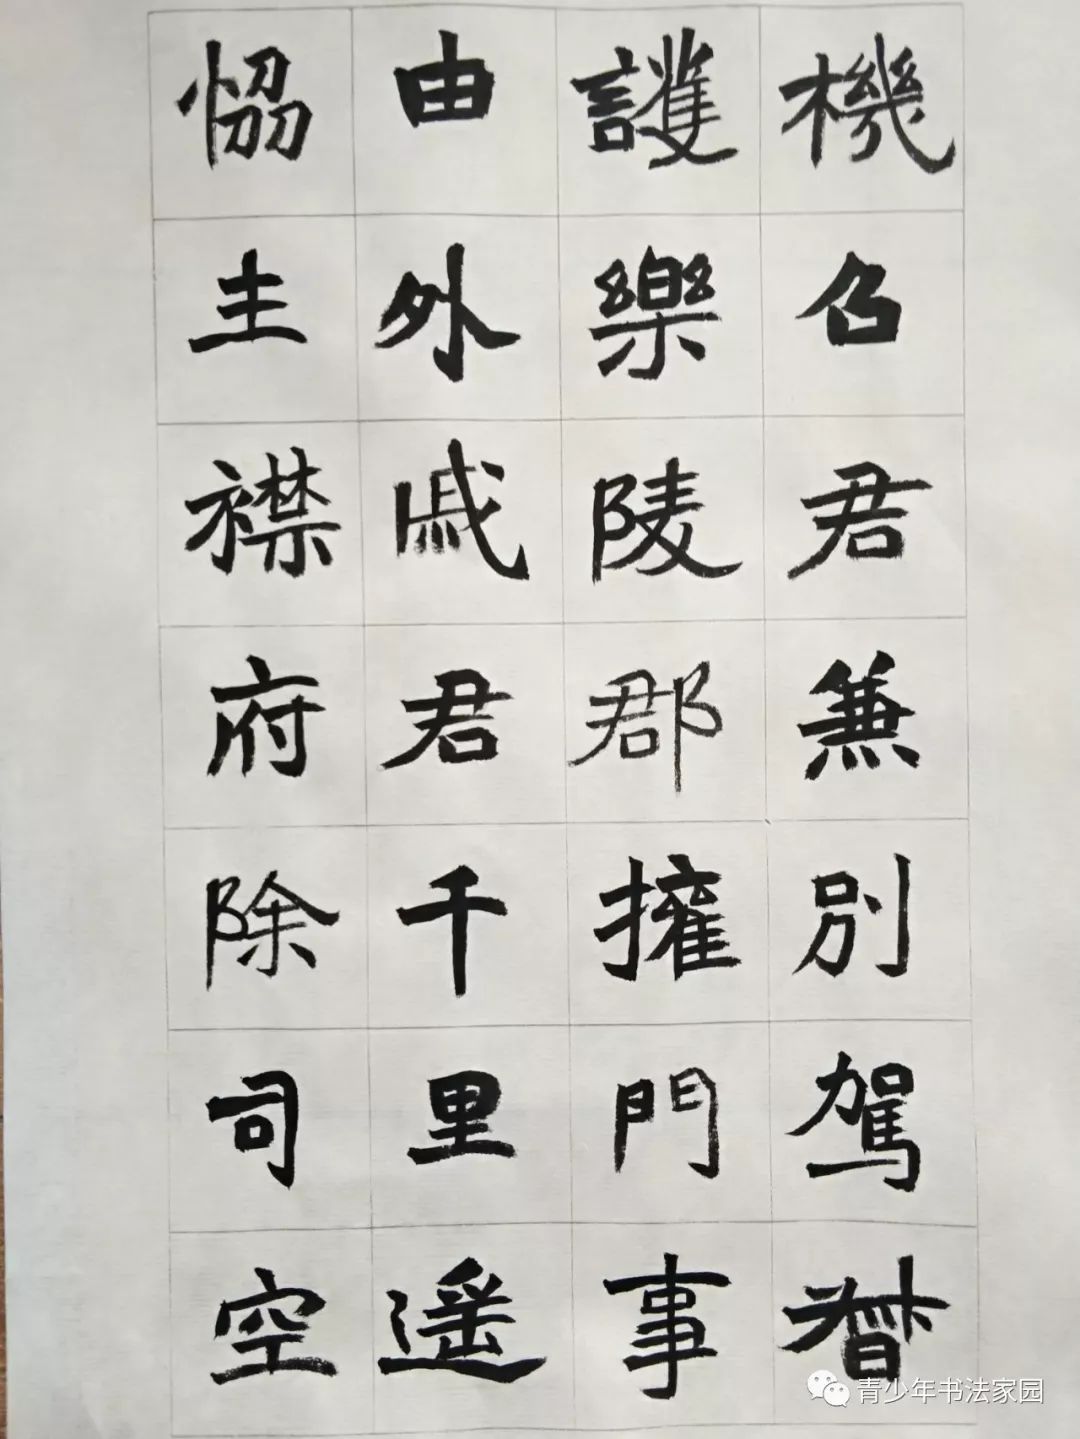 機召君兼別駕督
護樂陵郡擁門事
由外戚君千里遥
恊主襟府除司空
青少年书法家园